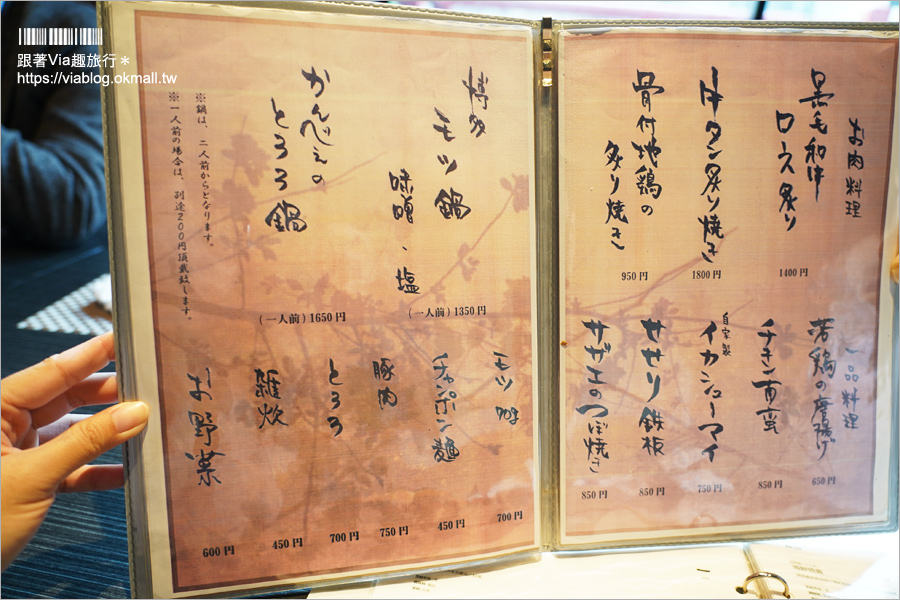 跟著Via趣旅行＊
https://viablog.okmall.tw
お肉料理
黒毛和牛
ロス炙り
1400円
牛タン炙り焼き
1800円
骨付地鶏の
炙り焼き
950円
一品料理
若鶏の唐揚げ
650円
チキン南蛮
850円
自家製
イカシューマイ
750円
せせり鉄板
850円
サザエのつぼ焼き
850円
博多
モツ鍋
味噌・塩
(一人前) 1350円
かんべえの
とろろ鍋
(一人前) 1650円
※鍋は、二人前からとなります。
※一人前の場合は、別途200円頂戴致します。
モツ
700円
チャンポン麺
450円
豚肉
750円
とろろ
700円
雑炊
450円
お野菜
600円